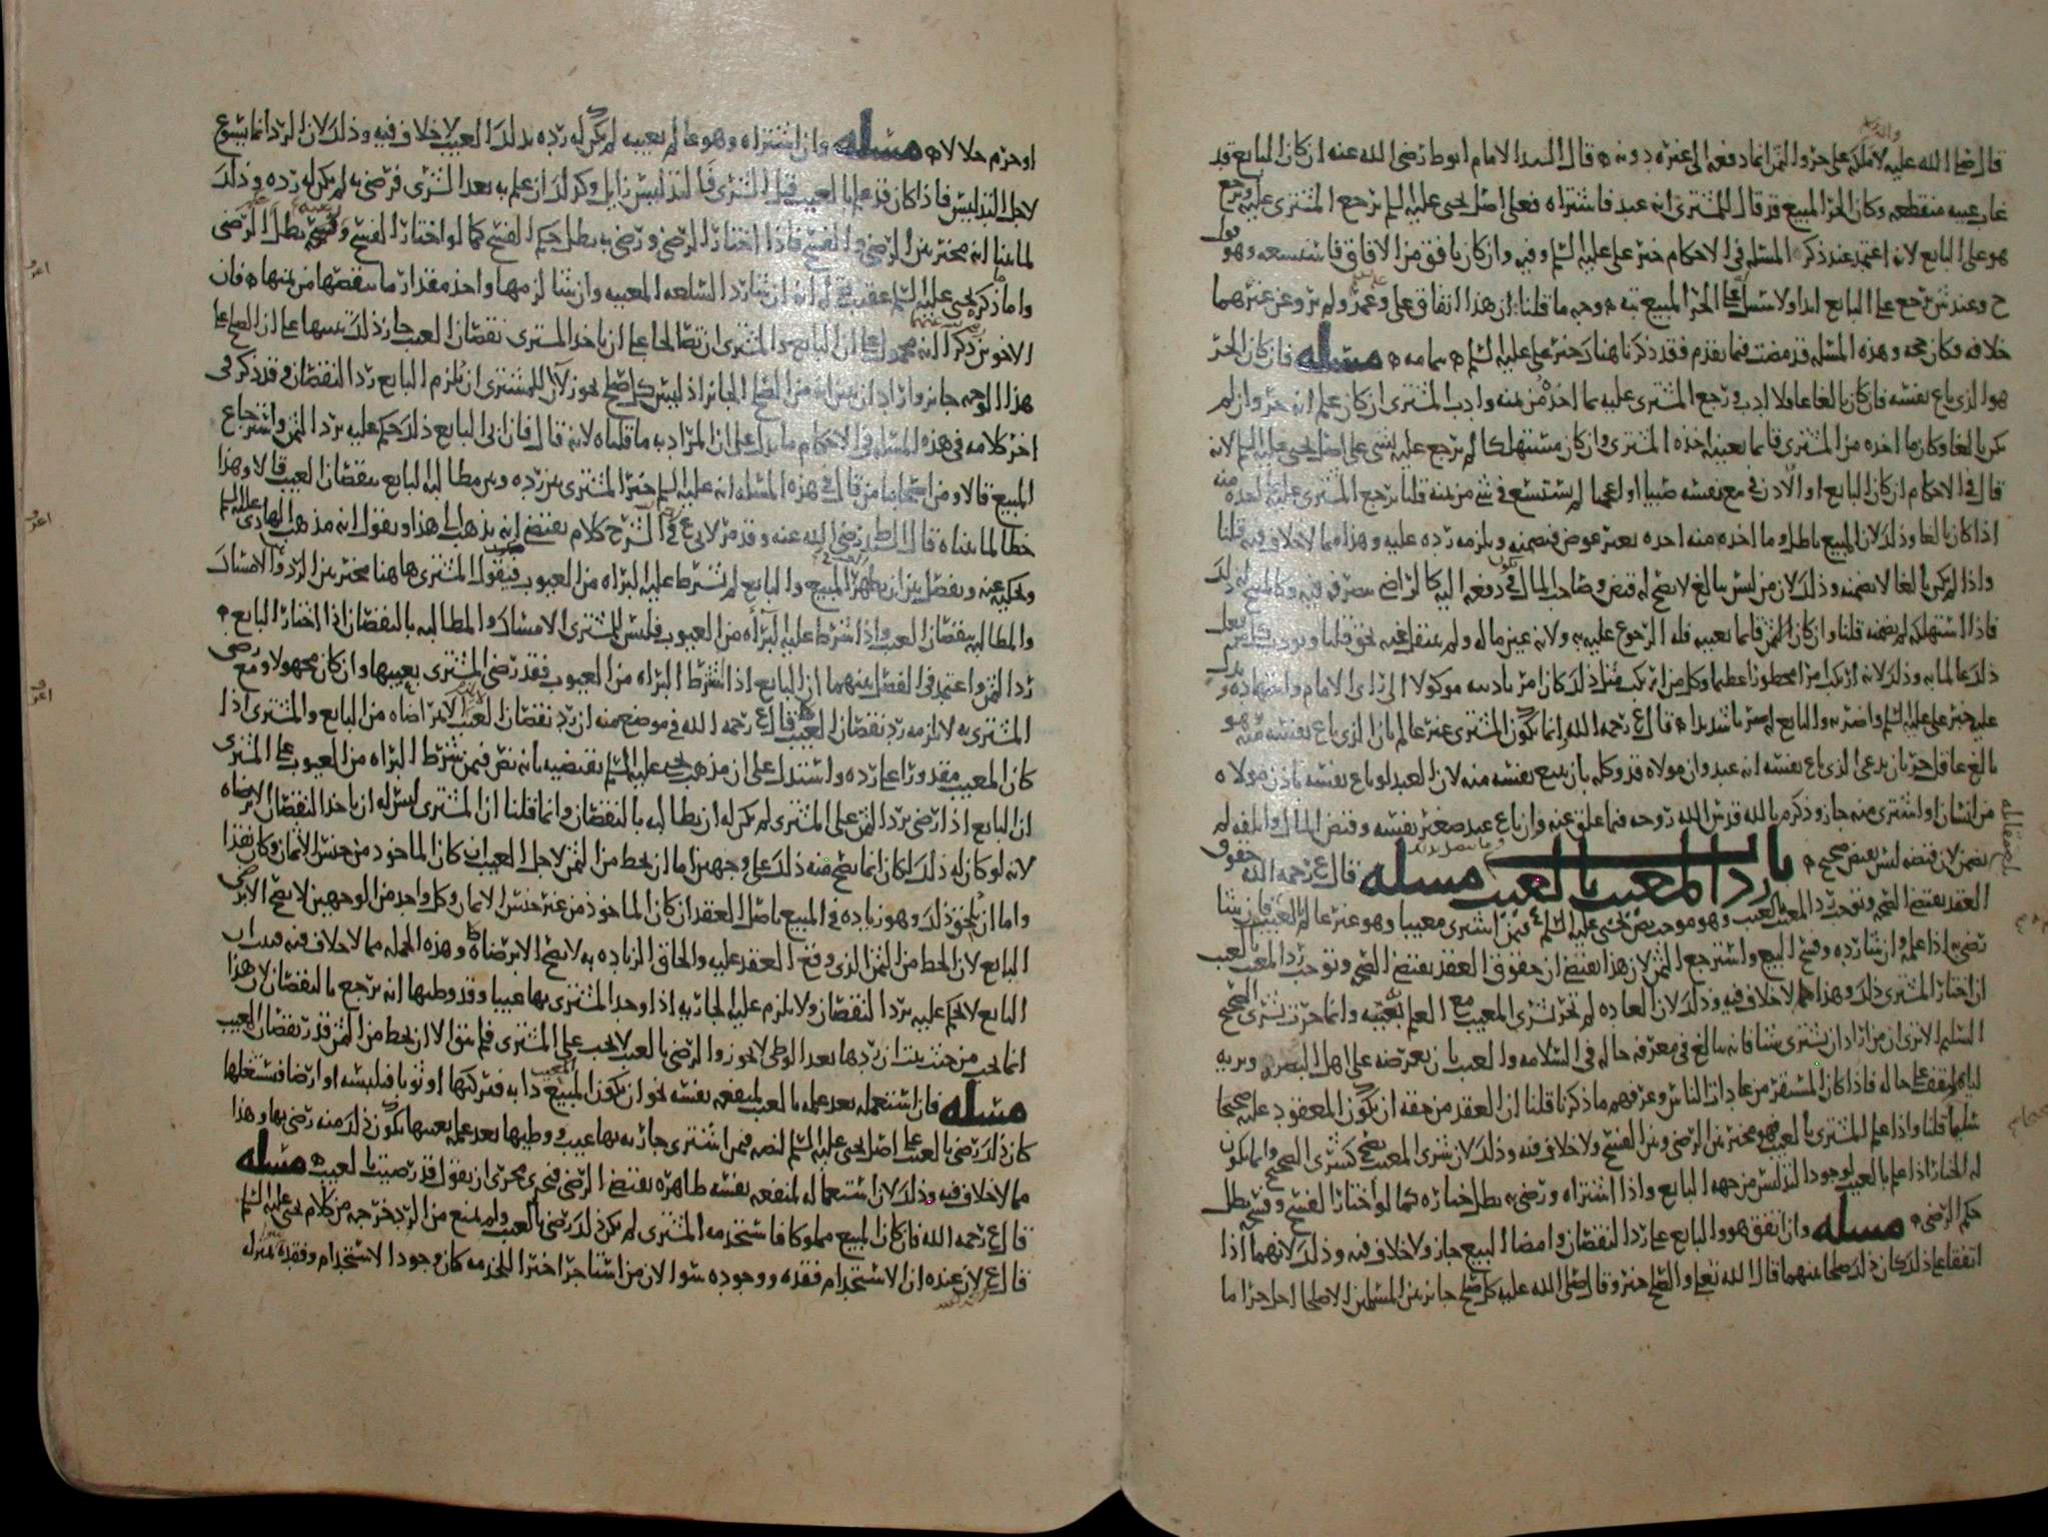 قال صلى الله عليه لا ملك على حر والثمن انما دفعه الى غيره دونه قال السيد الامام ابو طا رضي الله عنه ان كان البايع قد
غاب غيبه منقطعه وكان الحر المبيع قد قال للمشتري انه عبد فاشتراه فعلى اصل يحيى عليه السلم يرجع المشتري عليه ويرجع
هو على البايع لانه اعتمد عند ذكر المسله في الاحكام خبر علي عليه السلم وفيه وان كان بافق من الافاق فاستسعه وهو قول
ح وعند ش يرجع على البايع ابدا ولا سبيل على الحر المبيع وجه ما قلنا ان هذا اتفاق علي وعمر ولم يرو عن غيرهما
خلافه فكان حجه وهذه المسله قد مضت فيما تقدم فقد ذكرنا هناك خبر علي عليه السلم بتمامه مسله فان كان الحر
هو الذي باع نفسه فان كان بالغا عاقلا ادب ورجع المشتري عليه بما اخذ من ثمنه وادب المشتري ان كان علم انه حر وان لم
يكن بالغا وكان ما اخذه من المشتري قايما بعينه اخذه المشتري وان كان مستهلكا لم يرجع عليه بشي على اصل يحيى عليه السلم لانه
قال في الاحكام ان كان البايع او الاذن في بيع نفسه صبيا او اعجميا لم يستسع في شي من ثمنه قلنا يرجع المشتري عليه بما اخذه منه
اذا كان بالغا وذلك لان المبيع باطل وما اخذه منه اخذه بغير عوض فيضمنه ويلزمه رده عليه وهذا مما لا خلاف فيه قلنا
واذا لم يكن بالغا لا يضمنه وذلك لان من ليس ببالغ لا يصح له قبض وصاحب المال في دفعه اليه كالراضي بتصرفه فيه وكالمبيح له ذلك
فاذا استهلكه لم يضمنه قلنا وان كان الثمن قايما بعينه فله الرجوع عليه به ولانه عين ماله ولم ينتقل عنه بحق قلنا ويودب
ذلك عالما به وذلك لانه ارتكب امرا محظورا عظيما وكل من ارتكب مثل ذلك كان مر تاديبه موكولا الى راي الامام واجتهاده
عليه خبر علي عليه السلم واضربه والبايع ضربا شديدا قال ع رحمه الله انما يكون المشتري غير عالم بان الذي باع نفسه منه هو
بالغ عاقل حر بان يدعي الذي باع نفسه انه عبد وان مولاه قد وكله بان يبيع نفسه منه لان العبد لو باع نفسه باذن مولاه
من انسان او اشترى منه جاز وذكر م بالله قدس الله روحه فيما علق عنه وان باع عبد صغير نفسه وقبض المال واتلفه لم
يضمن لان قبضه ليس بقبض صحيح باب رد المعيب بالعيب مسله قال ع رحمه الله حقوق
العقد يقتضي الصحه وتوجب رد المعيب بالعيب وهو موجب نص يحيى عليه السلم فيمن اشترى معيبا وهو غير عالم بالعيب فان شا
رضي به اذا علمه وان شا رده وفسخ البيع واسترجع الثمن لان هذا يقتضي ان حقوق العقد يقتضي الصحه وتوجب رد المعيب بالعيب
ان اختار المشتري ذلك وهذا مما لا خلاف فيه وذلك لان العاده لم تجر بشرى المعيب مع العلم بعيبه وانما جرت بشرى الصحيح
السليم الا ترى ان من اراد ان يشتري شيئا فانه يبالغ في معرفه حاله في السلامه والعيب بان يعرضه على اهل البصر ويريه
ليقف على حاله فاذا كان المستقر من عادات الناس وعرفهم ما ذكرنا قلنا ان العقد من حقه ان يكون المعقود عليه صحيحا
سليما قلنا واذا علم المشتري بالعيب فهو مخير بين الرضى وبين الفسخ ولا خلاف فيه وذلك لان شرى المعيب يصح كشرى الصحيح وانما يكون
له الخيار اذا علم بالعيب لوجود التدليس من جهه البايع واذا اشتراه ورضي به بطل خياره كما لو اختار الفسخ وفسخ بطل
حكم الرضى مسله وان اتفق هو والبايع على رد النقصان وامضا البيع جاز ولا خلاف فيه وذلك لانهما اذا
اتفقا على ذلك كان ذلك صلحا بينهما قال الله تعالى والصلح خير وقال صلى الله عليه كل صلح جايز بين المسلمين الا صلحا احل حراما
او حرم حلالا مسله وان اشتراه وهو عالم بعيبه لم يكن له رده بذلك العيب لا خلاف فيه وذلك لان الرد انما يسوغ
لاجل التدليس فاذا كان قد علم بالعيب قبل الشرى فالتدليس زايل وكذلك ان علم به بعد الشرى فرضي به لم يكن له رده وذلك
لما بينا انه مخير بين الرضى والفسخ فاذا اختار الرضى ورضي به بطل حكم الفسخ كما لو اختار الفسخ وفسخ بطل الرضى
واما ما ذكره يحيى عليه السلم عقيب هذا انه ان شا رد السلعه المعيبه وان شا لزمها واخذ مقدار ما نقصها من ثمنها فان
الاخوين ذكرا انه محمول على ان البايع والمشتري ان تصالحا على ان ياخذ المشتري نقصان العيب جاز ذلك تنبيها على ان الصلح على
هذا الوجه جايز واراد ان يبين انه من الصلح الجايز اذ ليس كل صلح يجوز لا ان للمشتري ان يلزم البايع رد النقصان وقد ذكر في
اخر كلامه في هذه المسله في الاحكام ما يدل على ان المراد به ما قلناه لانه قال فان ابى البايع ذلك حكم عليه برد الثمن واسترجاع
المبيع قالا ومن اصحابنا من قال في هذه المسله انه عليه السلم خير المشتري بين رده وبين مطالبه البايع بنقصان العيب قالا وهذا
خطا لما بيناه قال السيد ط رضي الله عنه وقد مر لابي ع في الشرح كلام يقتضي انه يذهب الى هذا ويقول انه مذهب الهادي عليه السلم
ويحكيه عنه ويفصل بين ان يظهر المبيع والبايع لم يشترط عليه البراه من العيوب فيقول المشتري هاهنا مخير بين الرد والامساك
والمطالبه بنقصان العيب واذا شرط عليه البرآه من العيوب فليس للمشتري الامساك والمطالبه بالنقصان اذا اختار البايع
رد الثمن واعتمد في الفصل بينهما ان البايع اذا اشترط البراه من العيوب فقد رضي المشتري بعيبها وان كان مجهولا ومع رضى
المشتري به لا يلزمه رد نقصان العيب قال ع رحمه الله في موضع منه ان رد نقصان العيب لا بمراضاه من البايع والمشتري اذا
كان المعيب مقدورا على رده واستدل على ان مذهب يحيى عليه السلم يقتضيه بانه نص فيمن شرط البراه من العيوب على المشتري
ان البايع اذا رضي برد الثمن على المشتري لم يكن له ان يطالبه بالنقصان وانما قلنا ان المشتري ليس له ان ياخذ النقصان الا برضاه
لانه لو كان له ذلك لكان انما يصح منه ذلك على وجهين اما ان يحط من الثمن لاجل العيب ان كان الماخوذ من جنس الاثمان وكان نقدا
واما ان يلحق ذلك وهو زياده في المبيع باصل العقد ان كان الماخوذ من غير جنس الاثمان وكل واحد من الوجهين لا يصح الا برضى
البايع لان الحط من الثمن الذي وقع العقد عليه والحاق الزياده به لا يصح الا برضاه وهذه الجمله مما لا خلاف فيه
البايع لا يحكم عليه برد النقصان ولا يلزم عليه الجاريه اذا وجد المشتري بها عيبا وقد وطيها انه يرجع بالنقصان لان هذا
انما يجب من حيث ان ردها بعد الوطي لا يجوز والرضى بالعيب لا يجب على المشتري فلم يبق الا ان يحط من الثمن قدر نقصان العيب
مسله فان استعمله بعد علمه بالعيب لمنفعه نفسه نحو ان يكون المبيع دابه فيركبها او ثوبا فيلبسه او ارضا فيستغلها
كان ذلك رضى بالعيب على اصل يحيى عليه السلم لنصه فيمن اشترى جاريه بها عيب ووطيها بعد علمه بعيبها يكون ذلك منه رضى بها وهذا
مما لا خلاف فيه وذلك لان استعماله لمنفعه نفسه ظاهره يقتضي الرضى فيجري مجرى ان يقول قد رضيت بالعيب مسله
قال ع رحمه الله فان كان المبيع مملوكا فاستخدمه المشتري لم يكن ذلك رضى بالعيب ولم يمنع من الرد خرجه من كلام يحيى عليه السلم
قال ع لان عنده ان الاستخدام فقده ووجوده سوا لان من استاجر اجيرا للخدمه كان وجود الاستخدام وفقده بمنزله